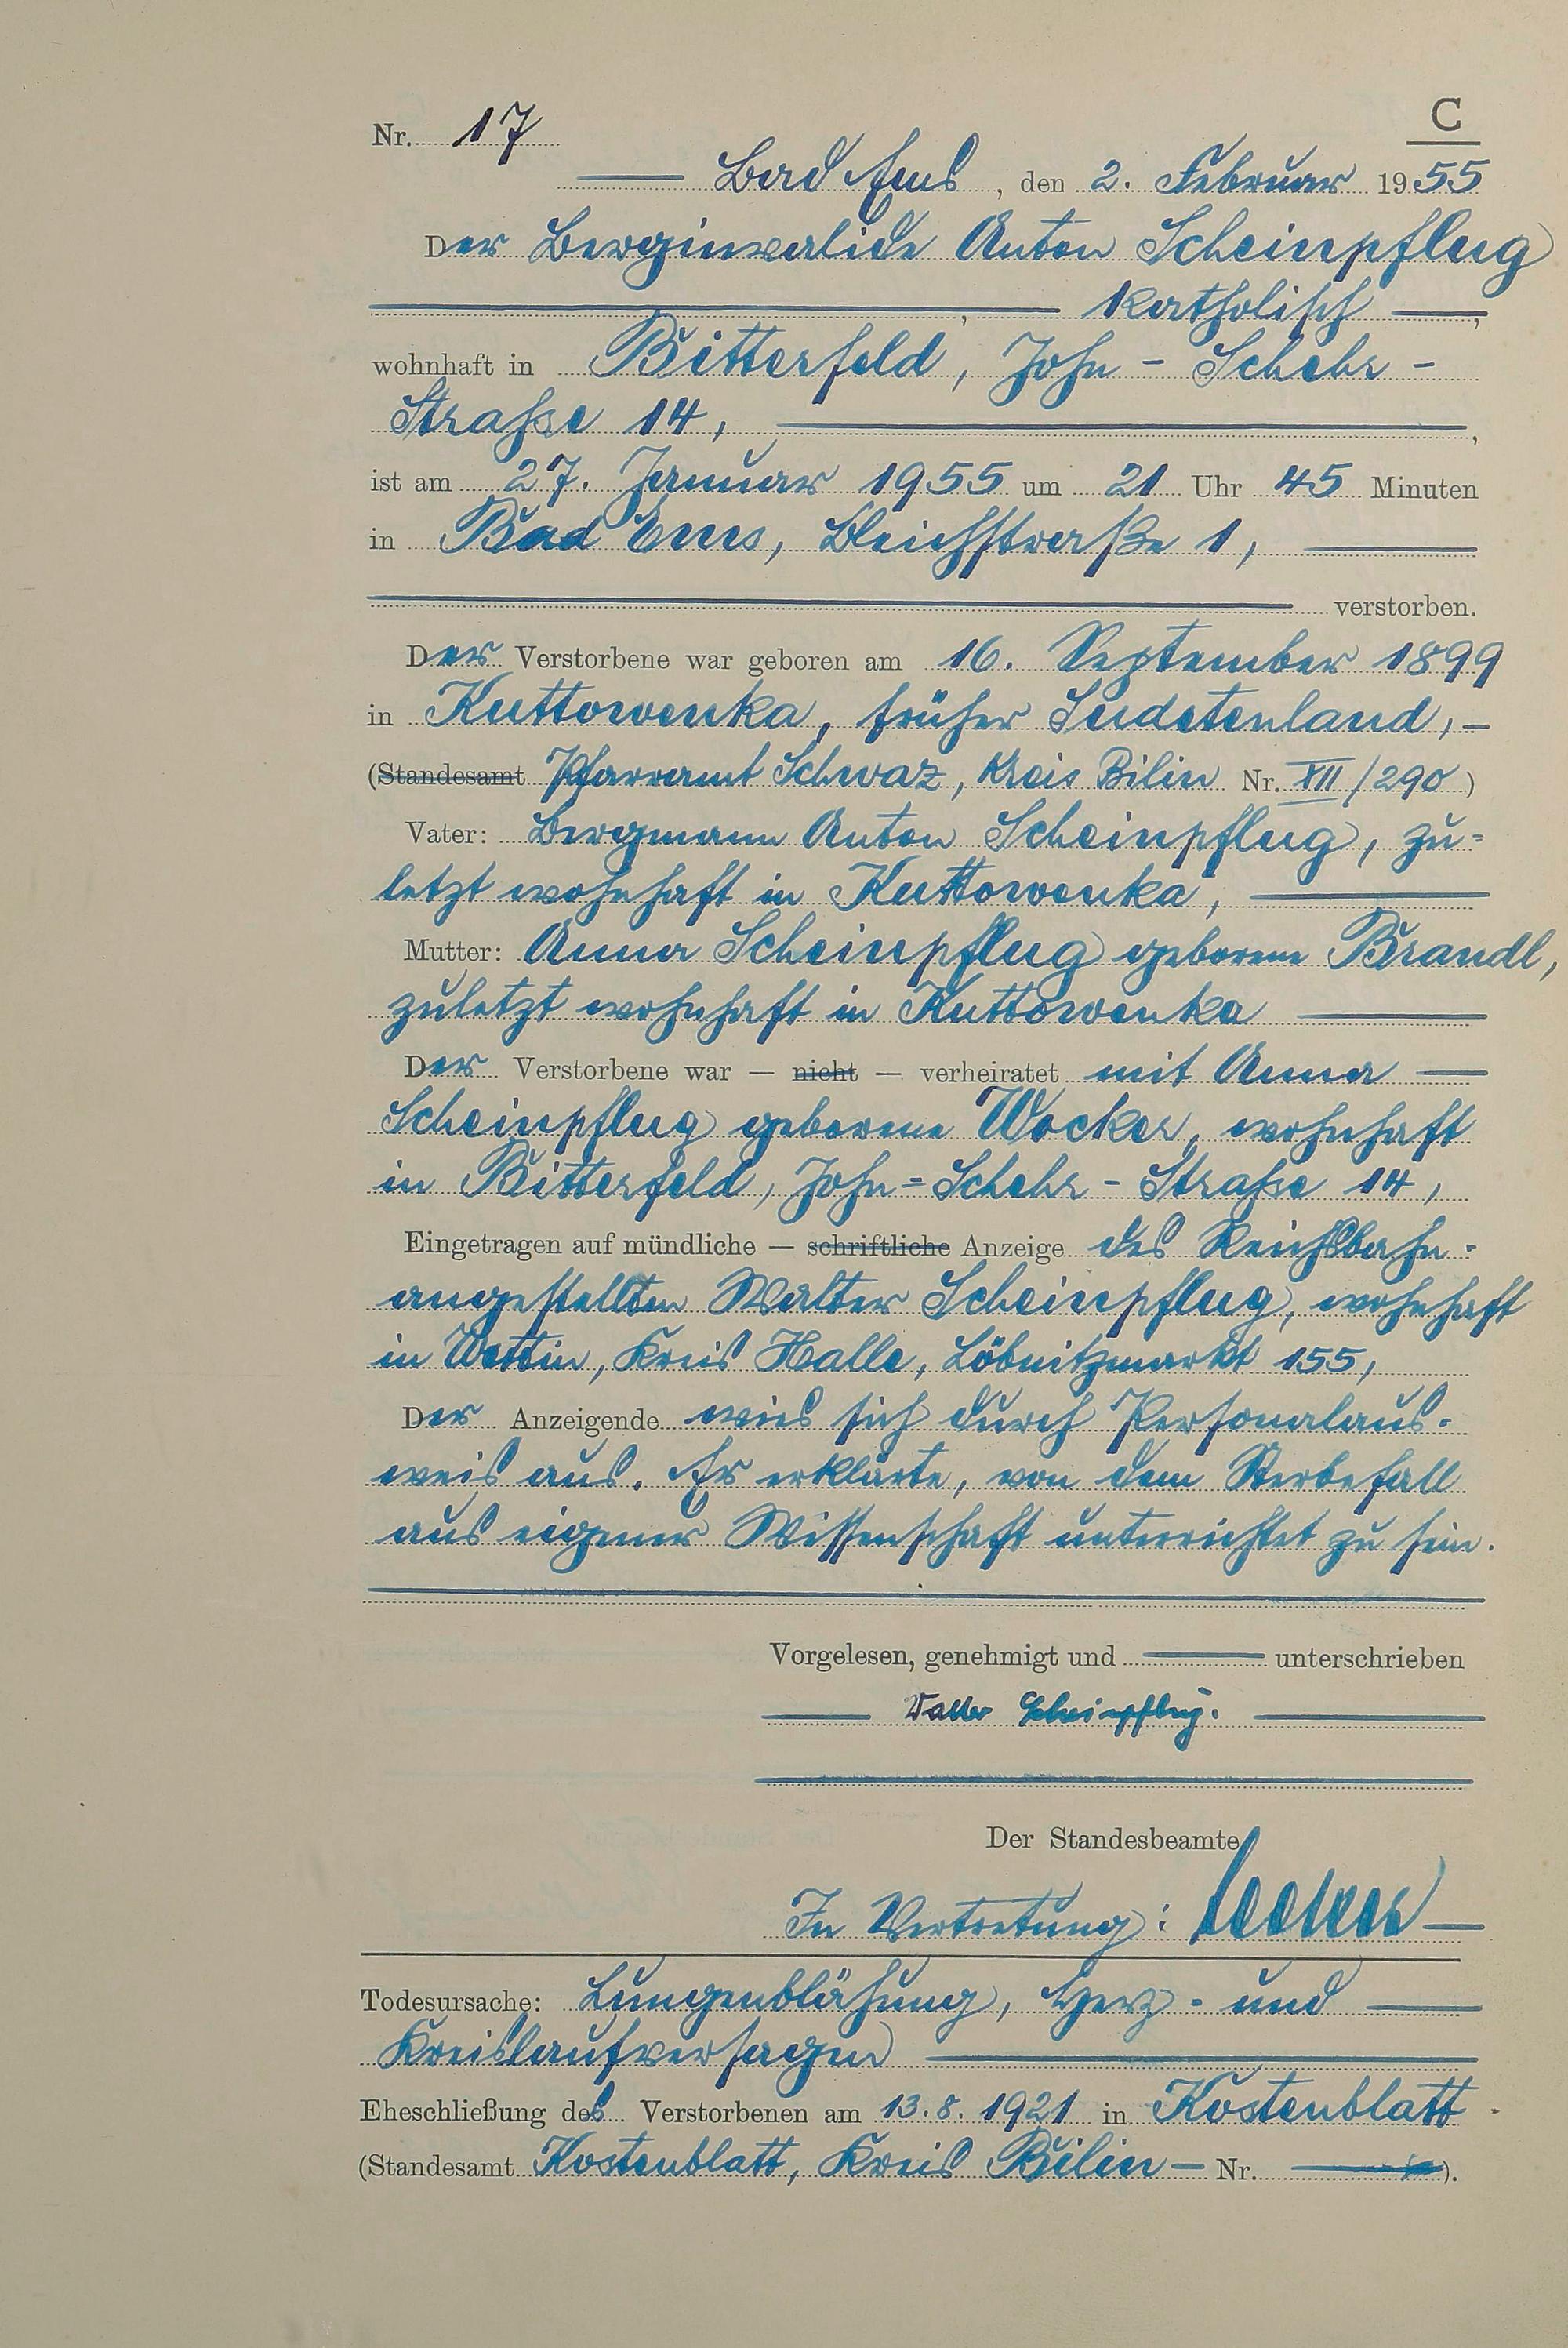 C
Nr. 17
Bad Ems, den 2. Februar 1955
Der Berginvalide Anton Scheinpflug
, katholisch ,
wohnhaft in Bitterfeld, John - Schehr -
Straße 14, ,
ist am 27. Januar 1955 um 21 Uhr 45 Minuten
in Bad Ems, Bleichstraße 1,
verstorben.
Der Verstorbene war geboren am 16. September 1899
in Kuttowenka, früher Sudetenland, -
(Standesamt Pfarramt Schwaz, Kreis Bilin Nr. XII/290)
Vater: Bergmann Anton Scheinpflug, zu=
letzt wohnhaft in Kuttowenka,
Mutter: Anna Scheinpflug geborene Brandl,
zuletzt wohnhaft in Kuttowenka
Der Verstorbene war — nicht — verheiratet mit Anna
Scheinpflug geborene Wocker, wohnhaft
in Bitterfeld, John=Schehr-Straße 14,
Eingetragen auf mündliche — schriftliche Anzeige des Reichsbahn-
angestellten Walter Scheinpflug, wohnhaft
in Wettin, Kreis Halle, Löbnitzmarkt 155,
Der Anzeigende wies sich durch Personalaus-
weis aus. Er erklärte, von dem Sterbefall
aus eigener Wissenschaft unterrichtet zu sein.
Vorgelesen, genehmigt und unterschrieben
Walter Scheinpflug.
Der Standesbeamte
In Vertretung:
Todesursache: Lungenblähung, Herz- und
Kreislaufversagen
Eheschließung des Verstorbenen am 13.8.1921 in Kostenblatt
(Standesamt Kostenblatt, Kreis Bilin - Nr. ).